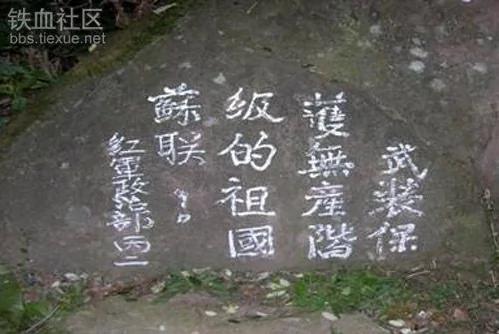 铁血社区
bbs.tiexue.net
武装保
護無産階
级的祖國
蘇联
红軍政治部